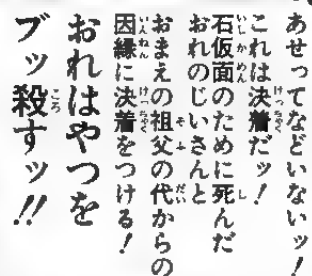 あせってなどいないッ！
これは決着だッ！
石仮面のために死んだ
おれのじいさんと
おまえの祖父の代からの
因縁に決着をつける！
おれはやつを
ブッ殺すッ!!